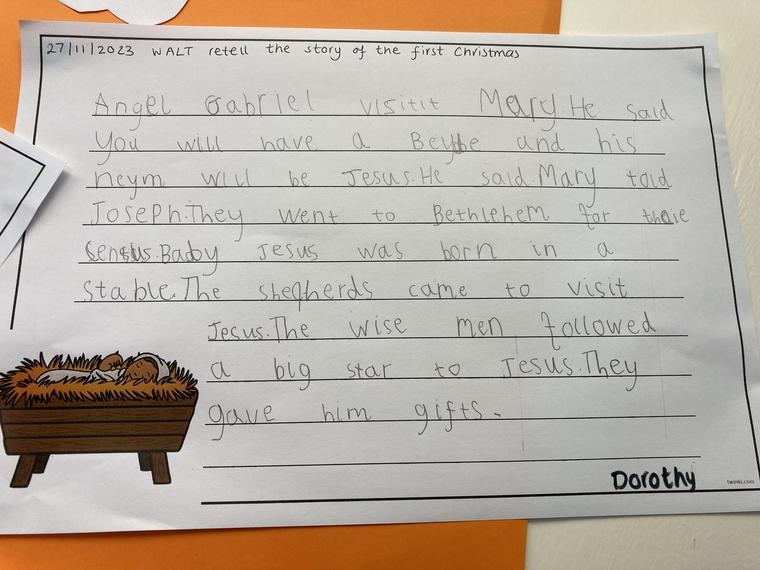 27/11/2023 WALT retell the story of the first Christmas
Angel Gabriel visitit Mary. He said
You will have a and his
neym will be Jesus. He said. Mary told
Joseph. They went to Bethlehem for thaie
Sensus. Baby Jesus was born in a
stable. The shepherds came to visit
Jesus. The wise men followed
a big star to Jesus. They
gave him gifts.
Dorothy
twinkl.com